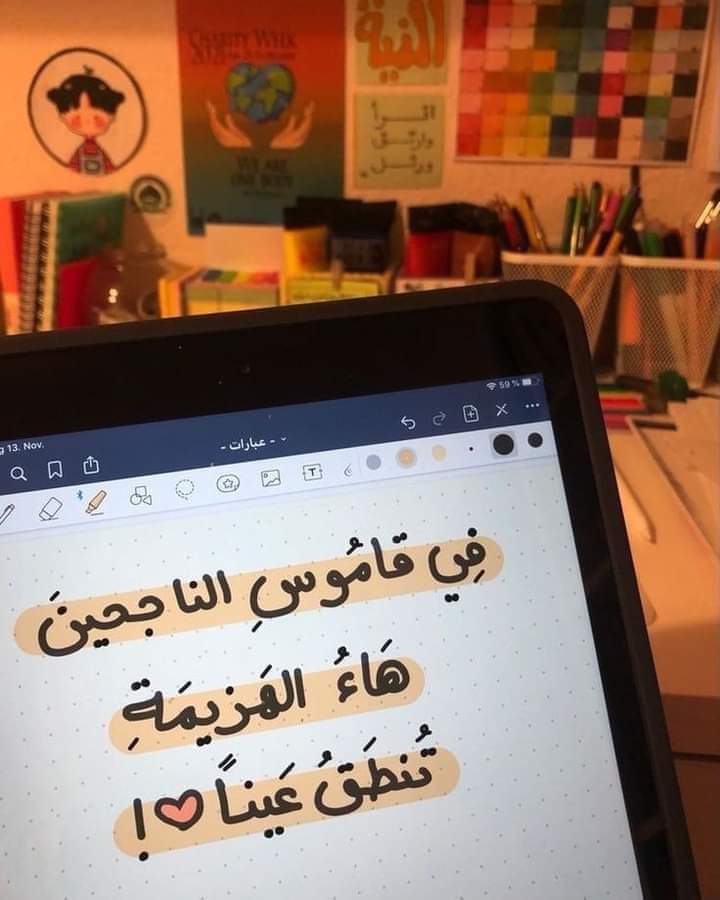 CHARITY WEEK
2021
WE ARE
ONE BODY
النية
اقرأ
وارتق
ورتل
59 %
13. Nov.
- عبارات -
T
فِي قَامُوسِ الناجحينَ
هَاءُ الهَزيمَةِ
تُنطَقُ عَيناً !